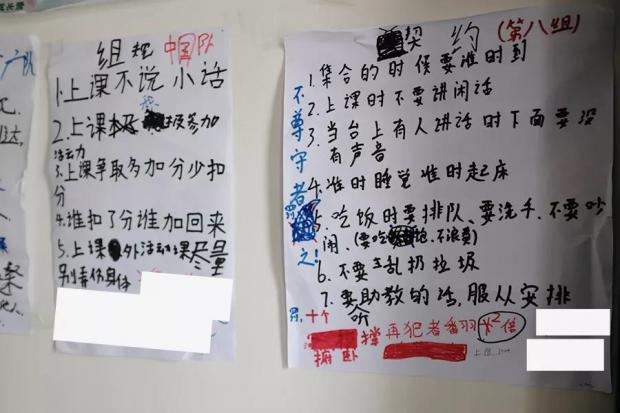 组规 中国队
1.上课不说小话
2.上课积极参加
活动
3.上课争取多加分少扣
分
4.谁扣了分谁加回来
5.上课外活动课尽量
别弄伤身体
契约(第八组)
1.集合的时候要准时到
2.上课时不要讲闲话
3.当台上有人讲话时下面要没
有声音
4.准时睡觉准时起床
5.吃饭时要排队、要洗手、不要吵
闹、(要吃 不浪费)
6.不要乱扔垃圾
7.要听助教的话,服从安排
不尊守者
罚之!
罚:十个
俯卧撑 再犯者番羽 x²倍